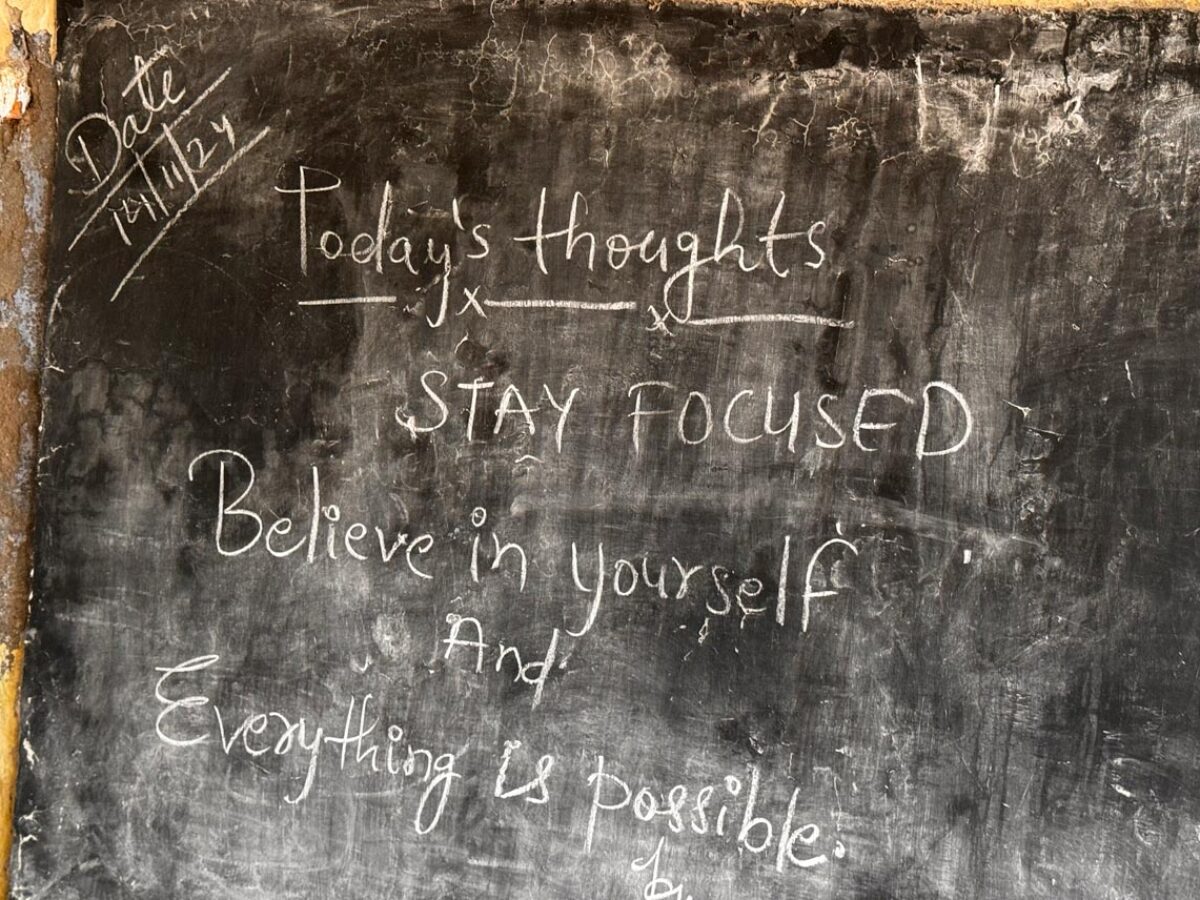 Date
14/11/24
Today's thoughts
STAY FOCUSED
Believe in yourself
And
Everything is possible.